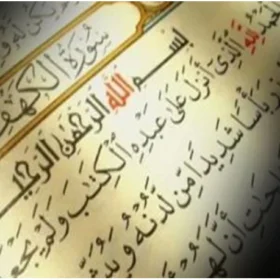 سُورَةُ الْكَهْفِ
بِسْمِ اللَّهِ الرَّحْمَٰنِ الرَّحِيمِ
لِلَّهِ الَّذِي أَنْزَلَ عَلَىٰ عَبْدِهِ الْكِتَٰبَ وَلَمْ يَجْعَ
بَأْسًا شَدِيدًا مِنْ لَدُنْهُ وَيُبَشِّ
حَاتِ أَنَّ لَهُ